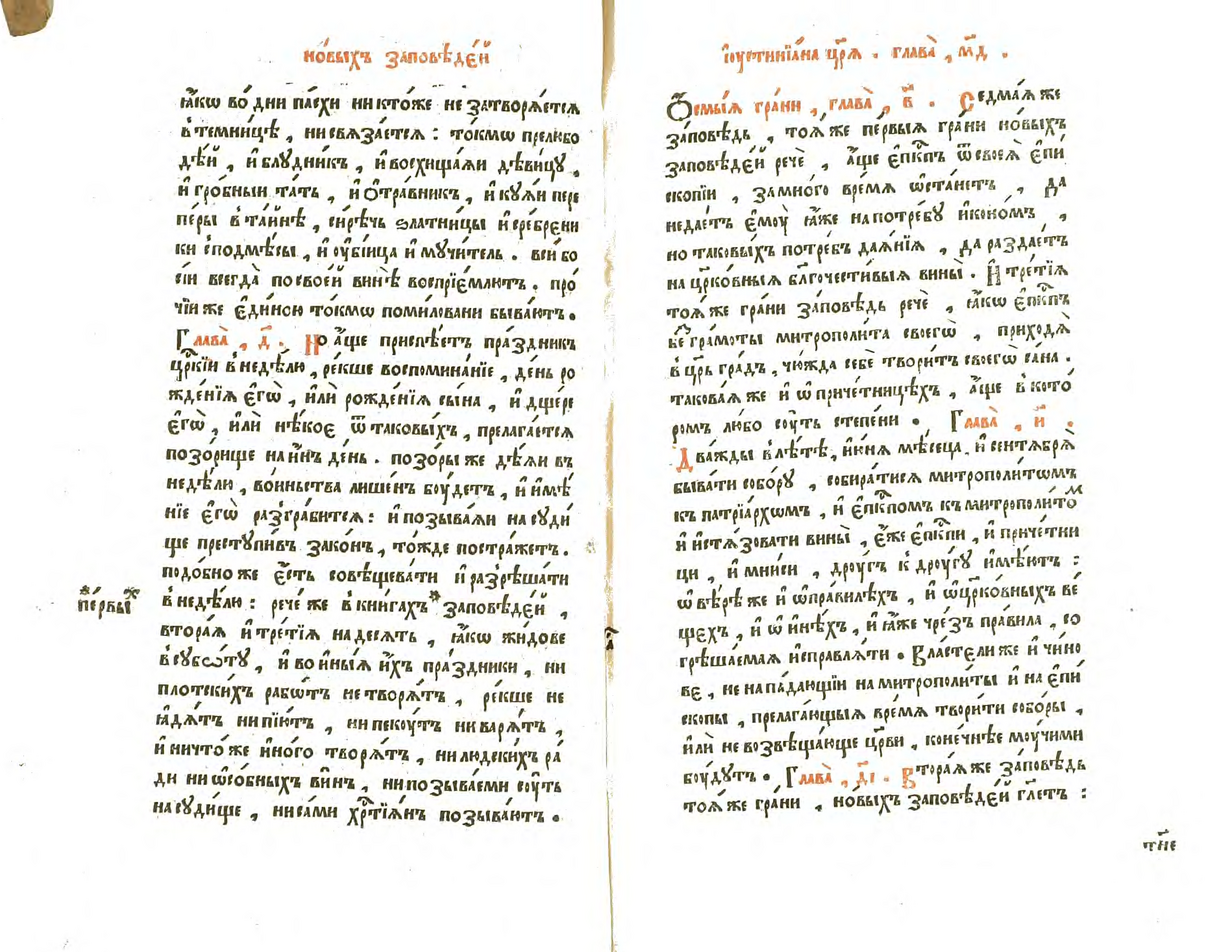 но́выхъ заповѣде́й
ꙗ҆́кѡ во́ дни па́схи никто́же не затворѧ́етсѧ
в темни́цѣ , ни свѧ́заетсѧ : то́кмѡ прелюбо
дѣ́й , и҆ блꙋдни́къ , и҆ восхища́ѧи дѣви́цꙋ ,
и҆ гро́бныи та́ть , и҆ ѻ҆тра́вникъ , и҆ кꙋ́ѧи пере
пе́ры в та́йнѣ , си́рѣчь ꙁла́тницы и҆ сре́брени
ки с подмѣ́сы , и҆ ᲂу҆бі́ица и҆ мꙋчи́тель . вси́ бо
сі́и всегда̀ по свое́й винѣ̀ воспрїе́млютъ . про́
чїи же є҆ди́ною то́кмѡ поми́ловани быва́ютъ .
Глава̀ , д҃ . Но а҆́ще приспѣ́етъ пра́здникъ
цр҃кїи в недѣ́лю , ре́кше воспомина́нїе , де́нь ро
жде́нїѧ є҆гѡ̀ , и҆лѝ рожде́нїѧ сы́на , и҆ дще́ре
є҆гѡ̀ , и҆лѝ нѣ́кое ѿ таковы́хъ , прелага́етсѧ
позо́рище на и҆́нъ де́нь . позо́ры же дѣ́ѧи въ
недѣ́лю , во́иньства лише́нъ бꙋ́детъ , и҆ и҆мѣ́
нїе є҆гѡ̀ разгра́битсѧ : и҆ позыва́ѧи на сꙋди́
ще престꙋпи́въ зако́нъ , то́жде постра́жетъ .
подо́бно же є҆́сть совѣщева́ти и҆ разрѣша́ти
*пе́рвыⷯ
в недѣ́лю : рече́ же в кни́гахъ* за́повѣде́й ,
втора́ѧ и҆ тре́тїѧ на де́сѧть , ꙗ҆́кѡ жи́дове
в сꙋббѡ́тꙋ , и҆ во и҆ны́ѧ и҆́хъ пра́здники , ни
плотски́хъ рабѡ́тъ не творѧ́тъ , ре́кше не
ꙗ҆дѧ́тъ ни пїю́тъ , ни пекꙋ́тъ ни варѧ́тъ ,
и҆ ничто́ же и҆но́го творѧ́тъ , ни людски́хъ ра́
ди ни ѡ҆со́бныхъ ви́нъ , ни позыва́еми сꙋ́ть
на сꙋди́ще , ни са́ми хр҃тїѧ́нъ позыва́ютъ .
і҆ᲂустинїа́на цр҃ѧ . глава̀ , м҃д .
Ѻ҆смы́ѧ гра́ни , глава̀ , в҃ . Седма́ѧ же
за́повѣдь , тоѧ́ же пе́рвыѧ гра́ни но́выхъ
заповѣде́й речѐ , а҆́ще є҆пⷭ҇кпъ ѿ своеѧ̀ є҆пи
ско́пїи , за мно́го вре́мѧ ѡ҆ста́нетъ , да
неда́етъ є҆мꙋ̀ ꙗ҆́же на потре́бꙋ и҆коно́мъ ,
но таковы́хъ потре́бъ даѧ́нїѧ , да раздае́тъ
на цр҃ко́вныѧ бл҃гочести́выѧ вины̀ . И҆ тре́тїѧ
тоѧ́ же гра́ни за́повѣдь речѐ , ꙗ҆́кѡ є҆пⷭ҇кпъ
бе́ з̾ гра́моты митрополи́та своегѡ̀ , приходѧ̀
в цр҃ь гра́дъ , чю́жда себѐ твори́тъ своегѡ̀ са́на .
такова́ѧ же и҆ ѡ҆ приче́тницѣхъ , а҆́ще в кото́
ромъ лю́бо сꙋ́ть степе́ни . Глава̀ , и҃ .
Два́жды в лѣ́тѣ , и҆ю́нѧ мѣ́сеца , и҆ сентѧбрѧ̀
быва́ти собо́рꙋ , собира́тисѧ митрополи́тѡмъ
къ патрїа́рхѡмъ , и҆ є҆пⷭ҇кпомъ къ митрополи́тоⷨ
и҆ и҆стѧза́ти вины̀ , є҆́же є҆пⷭ҇кпи , и҆ приче́тни
цы , и҆ мни́си , дрꙋ́гъ к дрꙋ́гꙋ и҆мѣ́ютъ :
ѡ҆ вѣ́рѣ же и҆ ѡ҆ пра́вилѣхъ , и҆ ѡ҆ цр҃ко́вныхъ ве́
щехъ , и҆ ѡ҆ и҆нѣ́хъ , и҆ ꙗ҆́же чре́зъ пра́вила , со
грѣша́емаѧ и҆справлѧ́ти . Власте́ли же и҆ чино
ве , не напа́дающїи на митрополи́ты и҆ на є҆пи́
скопы , прелага́ющыѧ вре́мѧ твори́ти собо́ры ,
и҆лѝ не возвѣща́юще цр҃ви , коне́чнѣе мꙋ́чими
бꙋ́дꙋтъ . Глава̀ , д҃і . Втора́ѧ же за́повѣдь
тоѧ́ же гра́ни , но́выхъ заповѣде́й гл҃етъ :